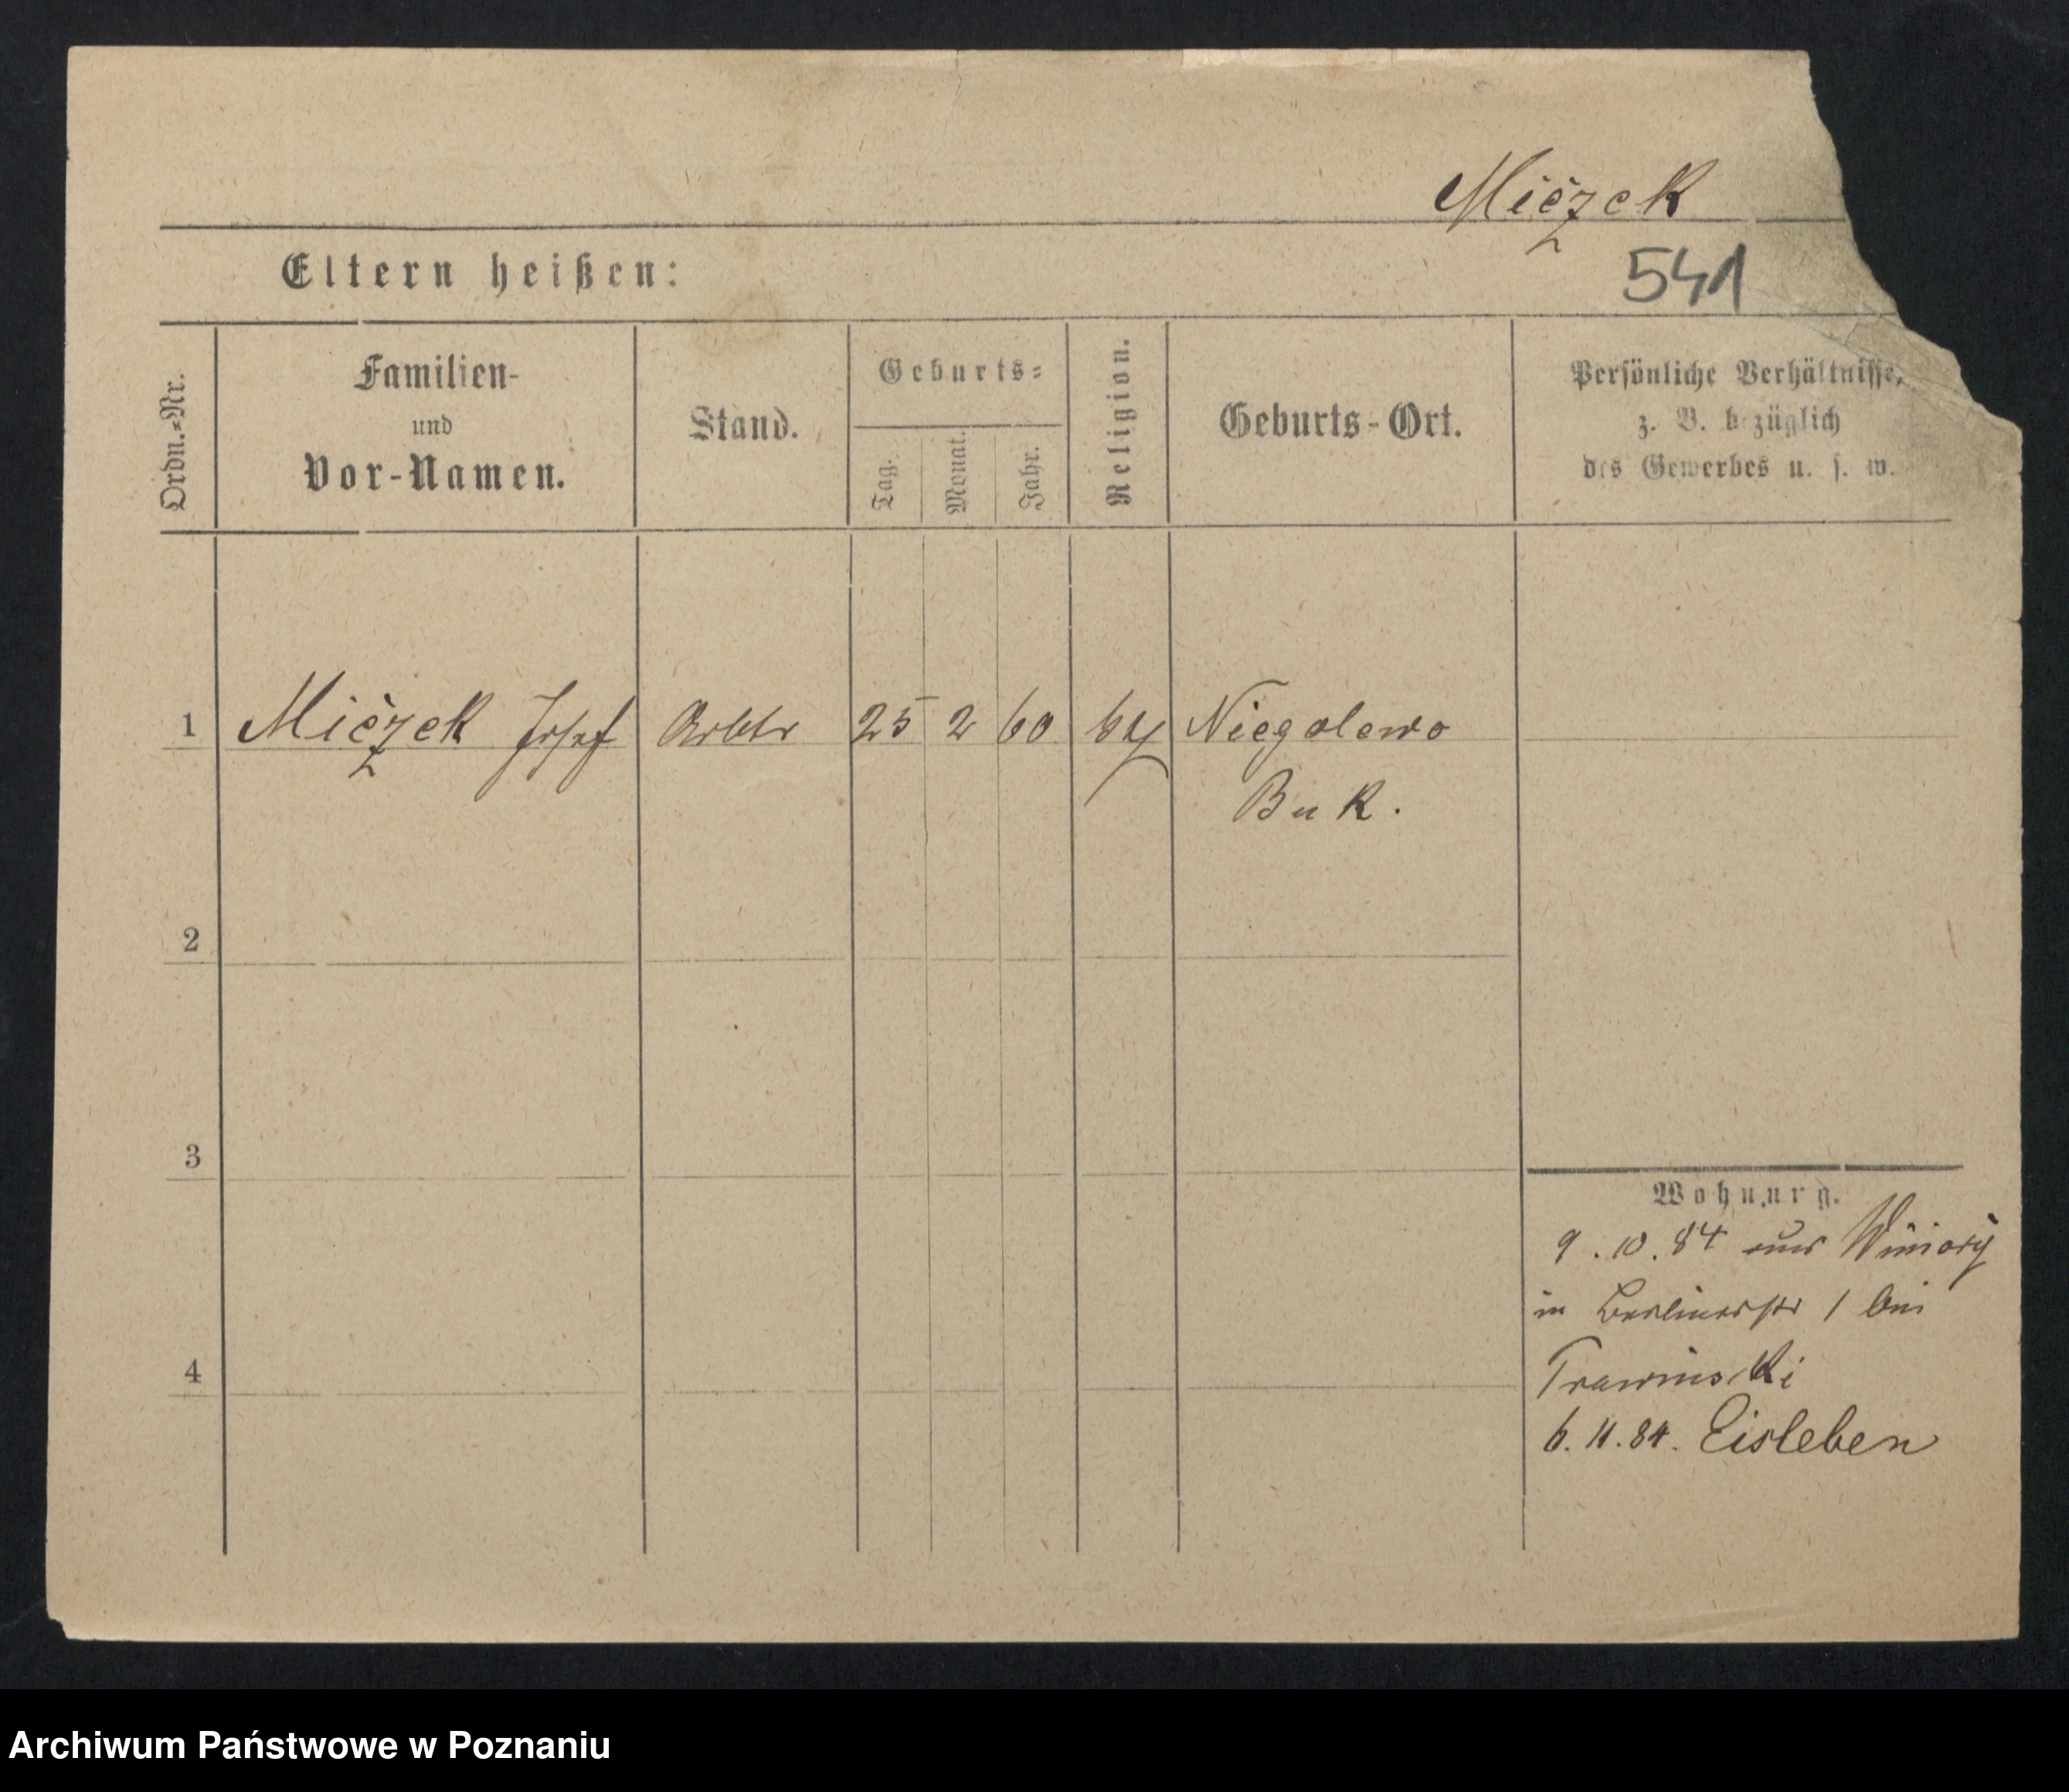 Miczek
541
Eltern heißen:
Ordn.=Nr.
Familien-
und
Vor-Namen.
Stand.
Geburts=
Tag.
Monat.
Jahr.
Religion.
Geburts-Ort.
Persönliche Verhältnisse,
z. B. bezüglich
des Gewerbes u. s. w.
1 Miczek Josef Arbtr 25 2 60 Niegolewo
Buk.
2
3
4
Wohnung.
9.10.84 aus Winiary
in Berlinerstr 1 bei
Trawinski
6.11.84. Eisleben
Archiwum Państwowe w Poznaniu